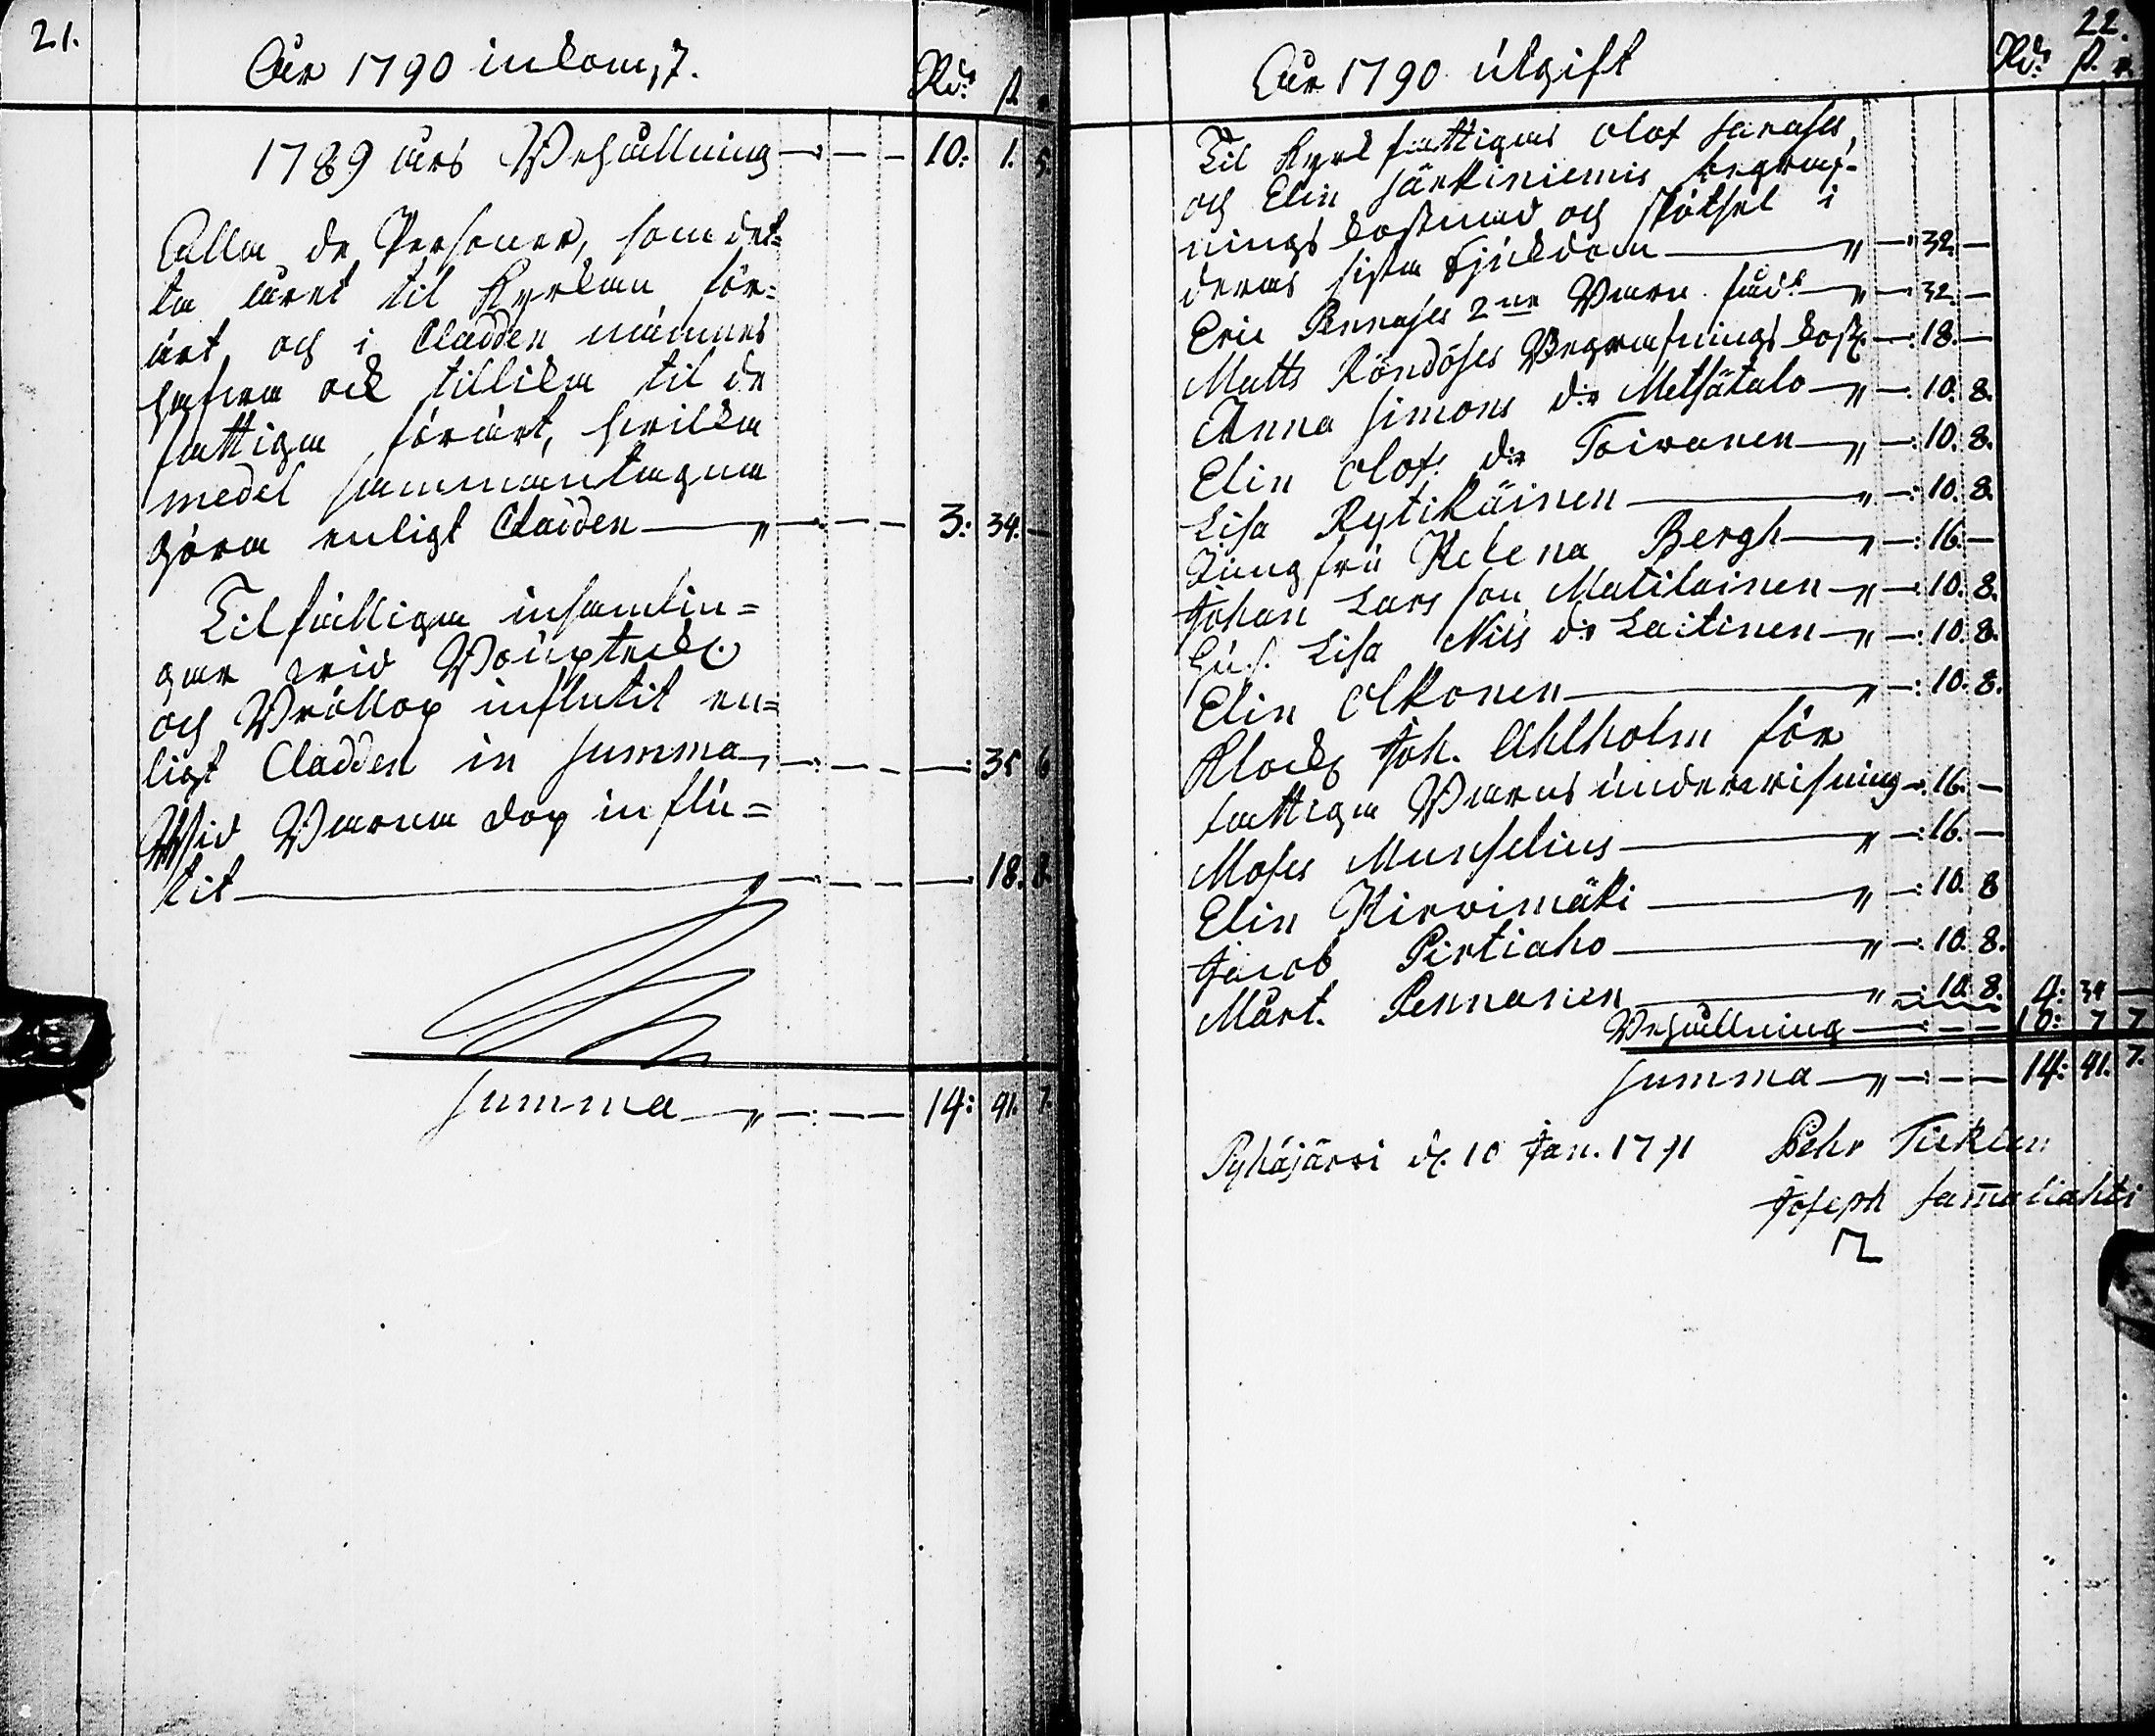 21.
År 1790 inkom,t. Rd:r ß. r.
1789 års Behållning 10: 1. 5.
Alla de Personer, som det=
ta året til Kyrkan för=
ärt och i Cladden nämnes
hafwa ock tillika til de
fattiga förärt, hwilka
medel sammantagna
göra enligt Cladden 3: 34. —
Tilfälliga insamlin=
gar wid
och Bröllop influtit en=
ligt Cladden in summa 35 6
Wid Barna dop influ=
tit 18. 8.
Summa 14: 41. 7.
22.
År 1790 utgift Rd:r ß. r.
Til Kyrk fattigas Olof Sarases,
och Elin Särkiniemis begraf-
nings kostnad och skötsel i
deras sista Sjukdom 32. —
Eric Pennases 2ne Barn 32. —
Matts Röndöses Begrafnings kost. 18. —
Anna Simons d:r Metsätalo 10. 8.
Elin Olofs d:r Toivanen 10. 8.
Lisa Rytikäinen 10. 8.
Jungfru Helena Bergh 16. —
Johan Lars son Matilainen 10. 8.
Hu.s. Lisa Nils d:r Laitinen 10. 8.
Elin Olkonen 10. 8.
Klock. Joh. Ahlholm för
fattiga Barns underwisning 16. —
Moses Munselius 16. —
Elin Hirvimäki 10. 8
Jacob Pirtiaho 10. 8.
Mårt. Pennanen 10. 8. 4: 34 —
Behållning 10: 7 7
Summa 14: 41. 7.
Pyhäjärvi d. 10 Jan. 1791 Pehr
Joseph